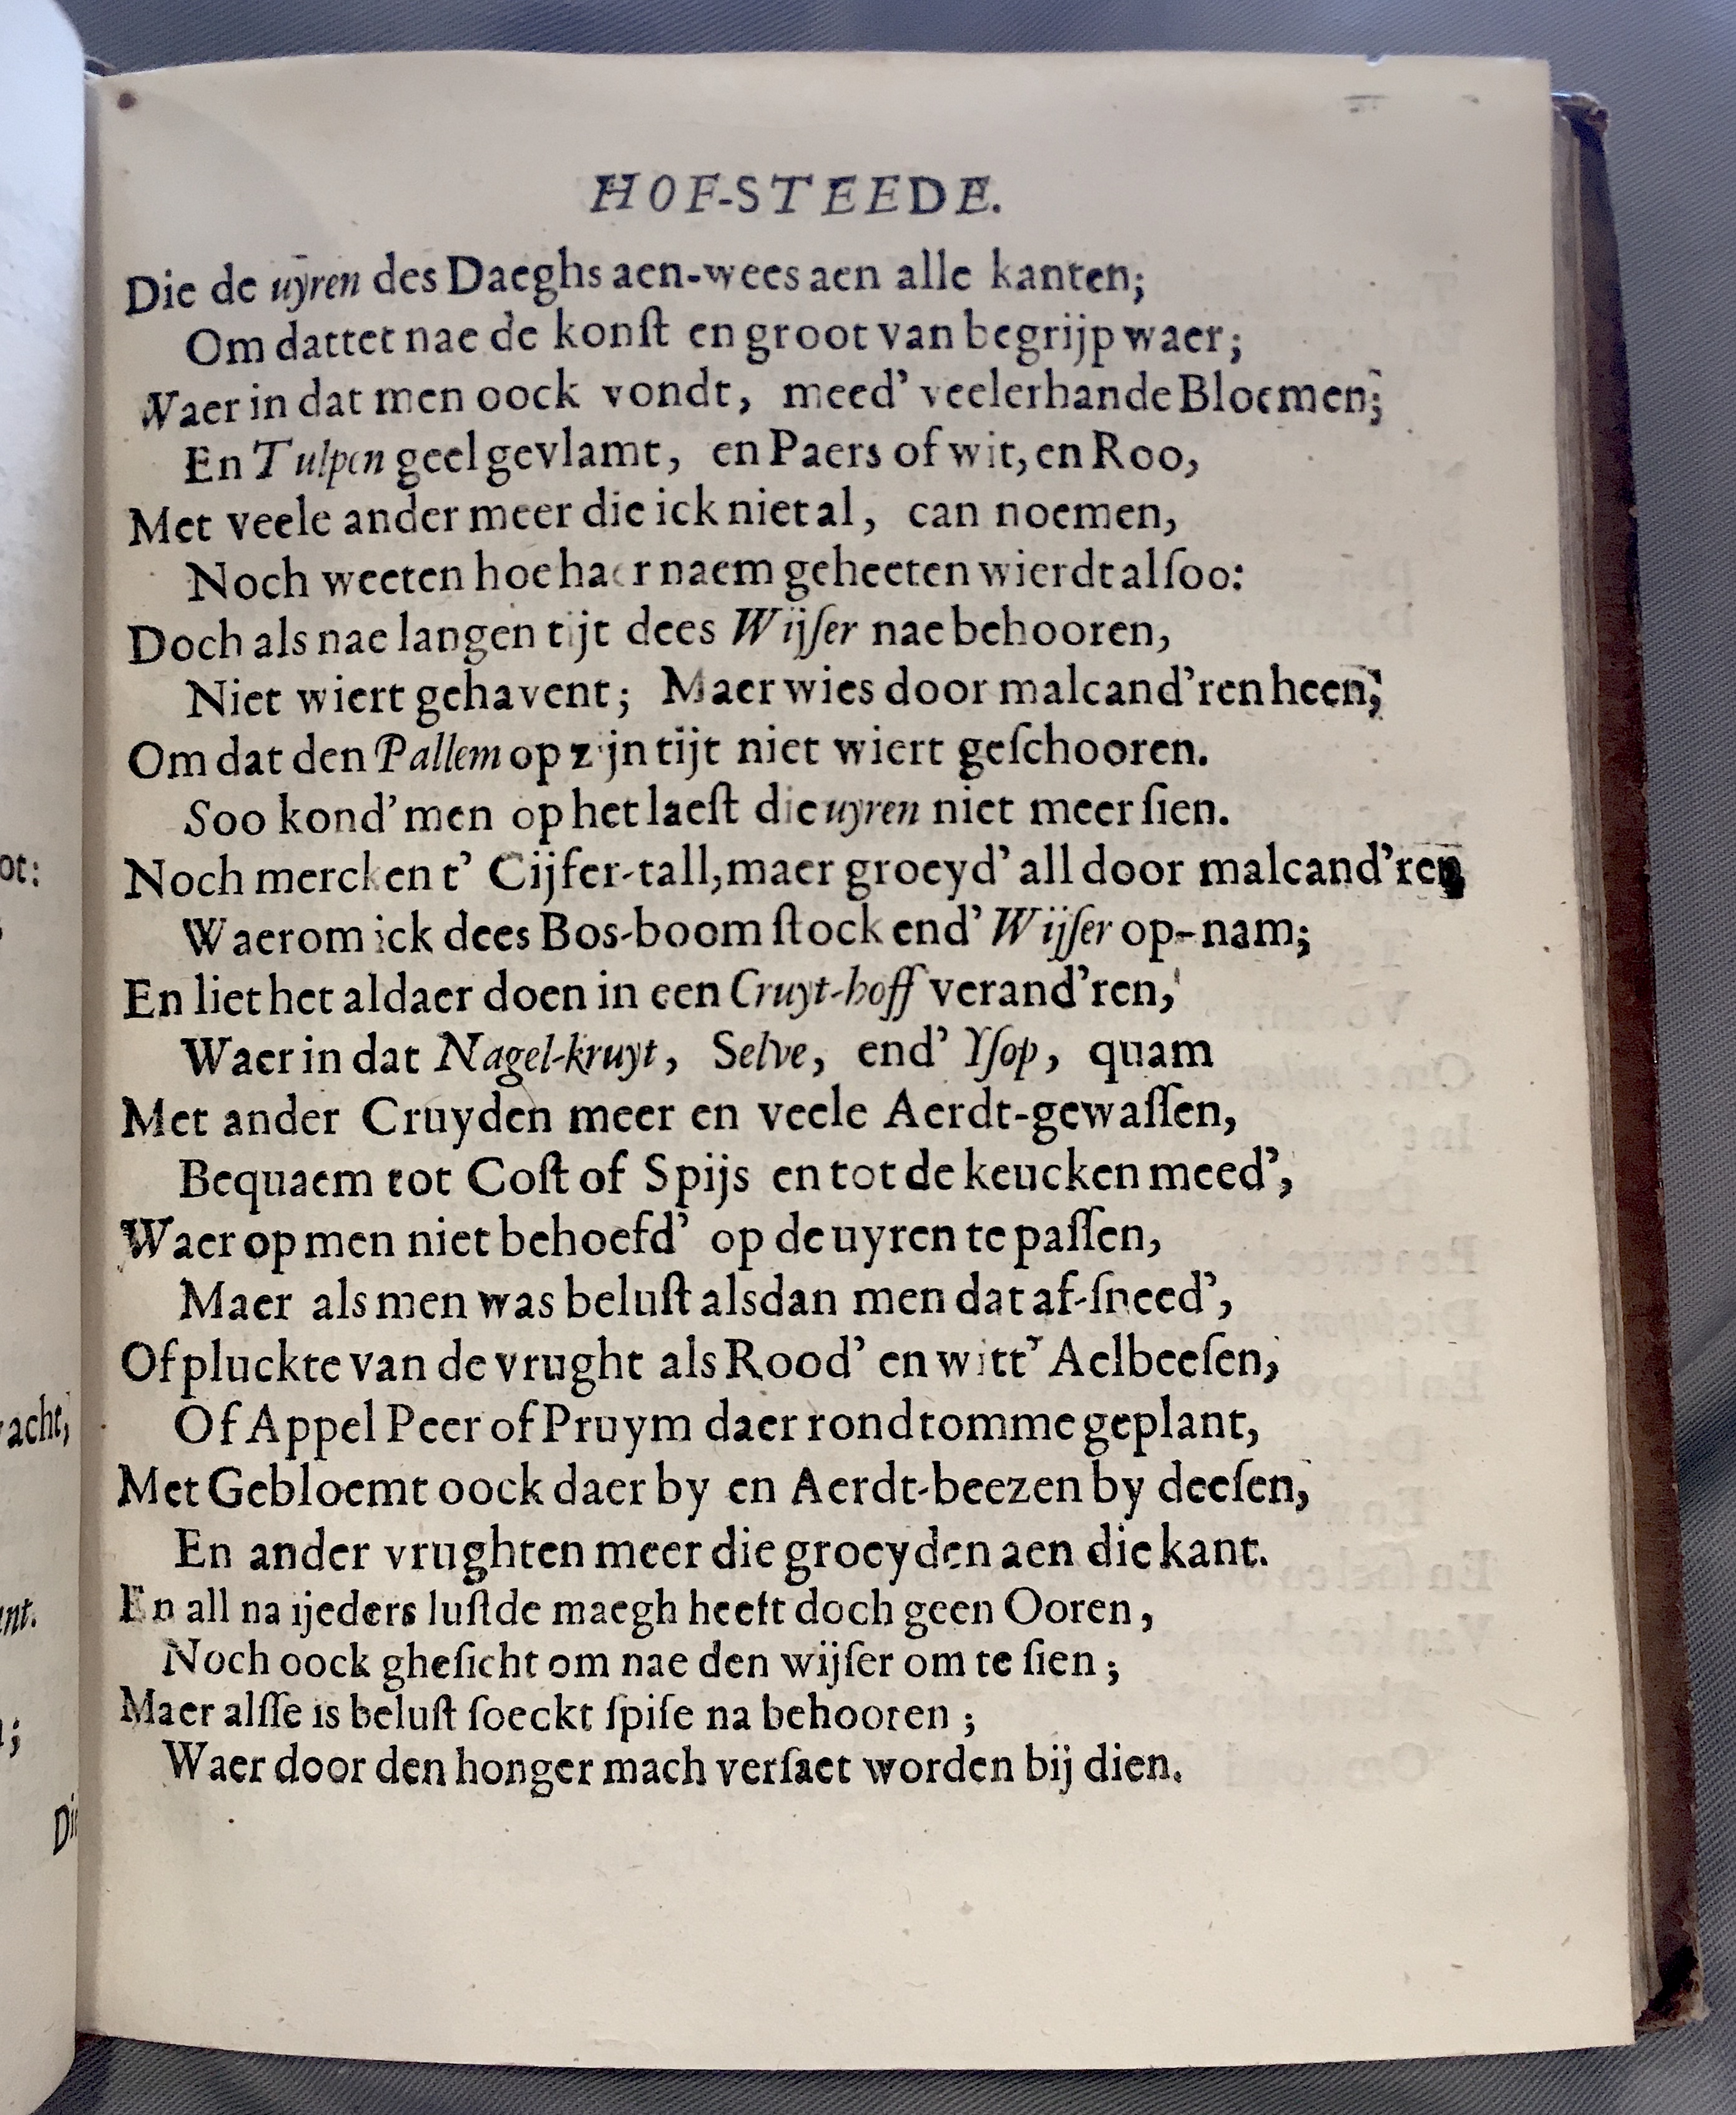 HOF-STEEDE.
Die de uÿren des Daeghs aen-wees aen alle kanten;
Om dattet nae de konſt en groot van begrijp waer;
Waer in dat men oock vondt, meed' veelerhande Bloemen;
En Tulpen geel gevlamt, en Paers of wit, en Roo,
Met veele ander meer die ick niet al, can noemen,
Noch weeten hoe haer naem geheeten wierdt alſoo:
Doch als nae langen tijt dees Wijſer nae behooren,
Niet wiert gehavent; Maer wies door malcand'ren heen;
Om dat den Pallem op zijn tijt niet wiert geſchooren.
Soo kond' men op het laeſt die uyren niet meer ſien.
Noch mercken t' Cijfer-tall, maer groeyd' all door malcand'ren
Waerom ick dees Bos-boom ſtock end' Wijſer op-nam;
En liet het aldaer doen in een Cruyt-hoff verand'ren,
Waer in dat Nagel-kruyt, Selve, end' Yſop, quam
Met ander Cruyden meer en veele Aerdt-gewaſſen,
Bequaem tot Coſt of Spijs en tot de keucken meed',
Waer op men niet behoefd' op de uyren te paſſen,
Maer als men was beluſt alsdan men dat af-ſneed',
Of pluckte van de vrught als Rood' en witt' Aelbeeſen,
Of Appel Peer of Pruym daer rondtomme geplant,
Met Gebloemt oock daer by en Aerdt-beezen by deeſen,
En ander vrughten meer die groeyden aen die kant.
En all na ijeders luſt de maegh heeft doch geen Ooren,
Noch oock gheſicht om nae den wijſer om te ſien;
Maer alſſe is beluſt ſoeckt ſpiſe na behooren;
Waer door den honger mach verſaet worden bij dien.
ot:
acht,
nt.
;
Di